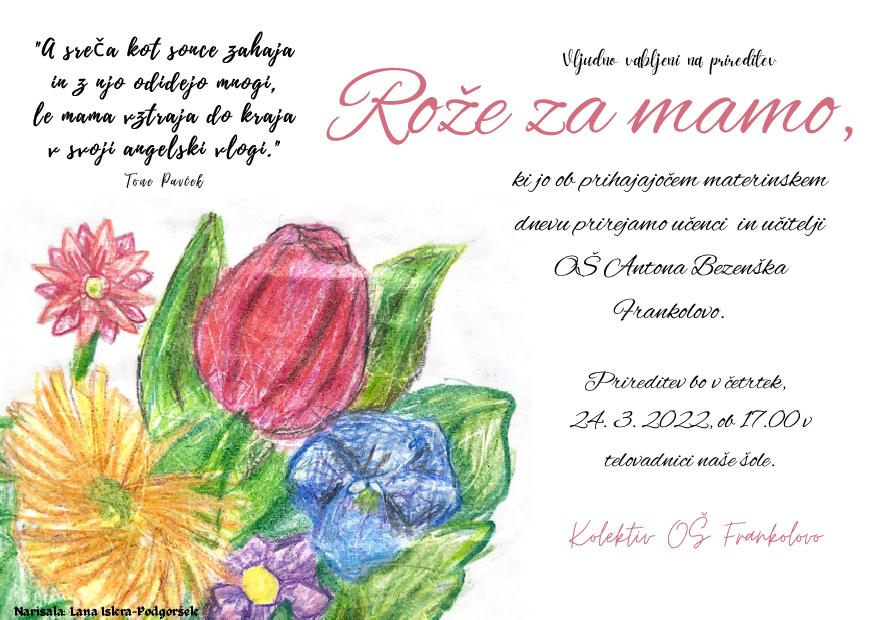 "A sreča kot sonce zahaja
in z njo odidejo mnogi,
le mama vztraja do kraja
v svoji angelski vlogi."
Tone Pavček
Vljudno vabljeni na prireditev
Rože za mamo,
ki jo ob prihajajočem materinskem
dnevu prirejamo učenci in učitelji
OŠ Antona Bezenška
Frankolovo.
Prireditev bo v četrtek,
24. 3. 2022, ob 17.00 v
telovadnici naše šole.
Kolektiv OŠ Frankolovo
Narisala: Lana Iskra-Podgoršek